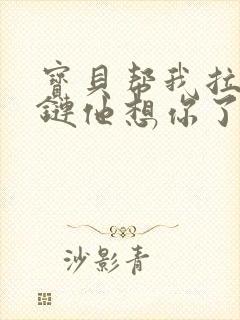 寶貝幫我拉
鏈他想你了
沙影青